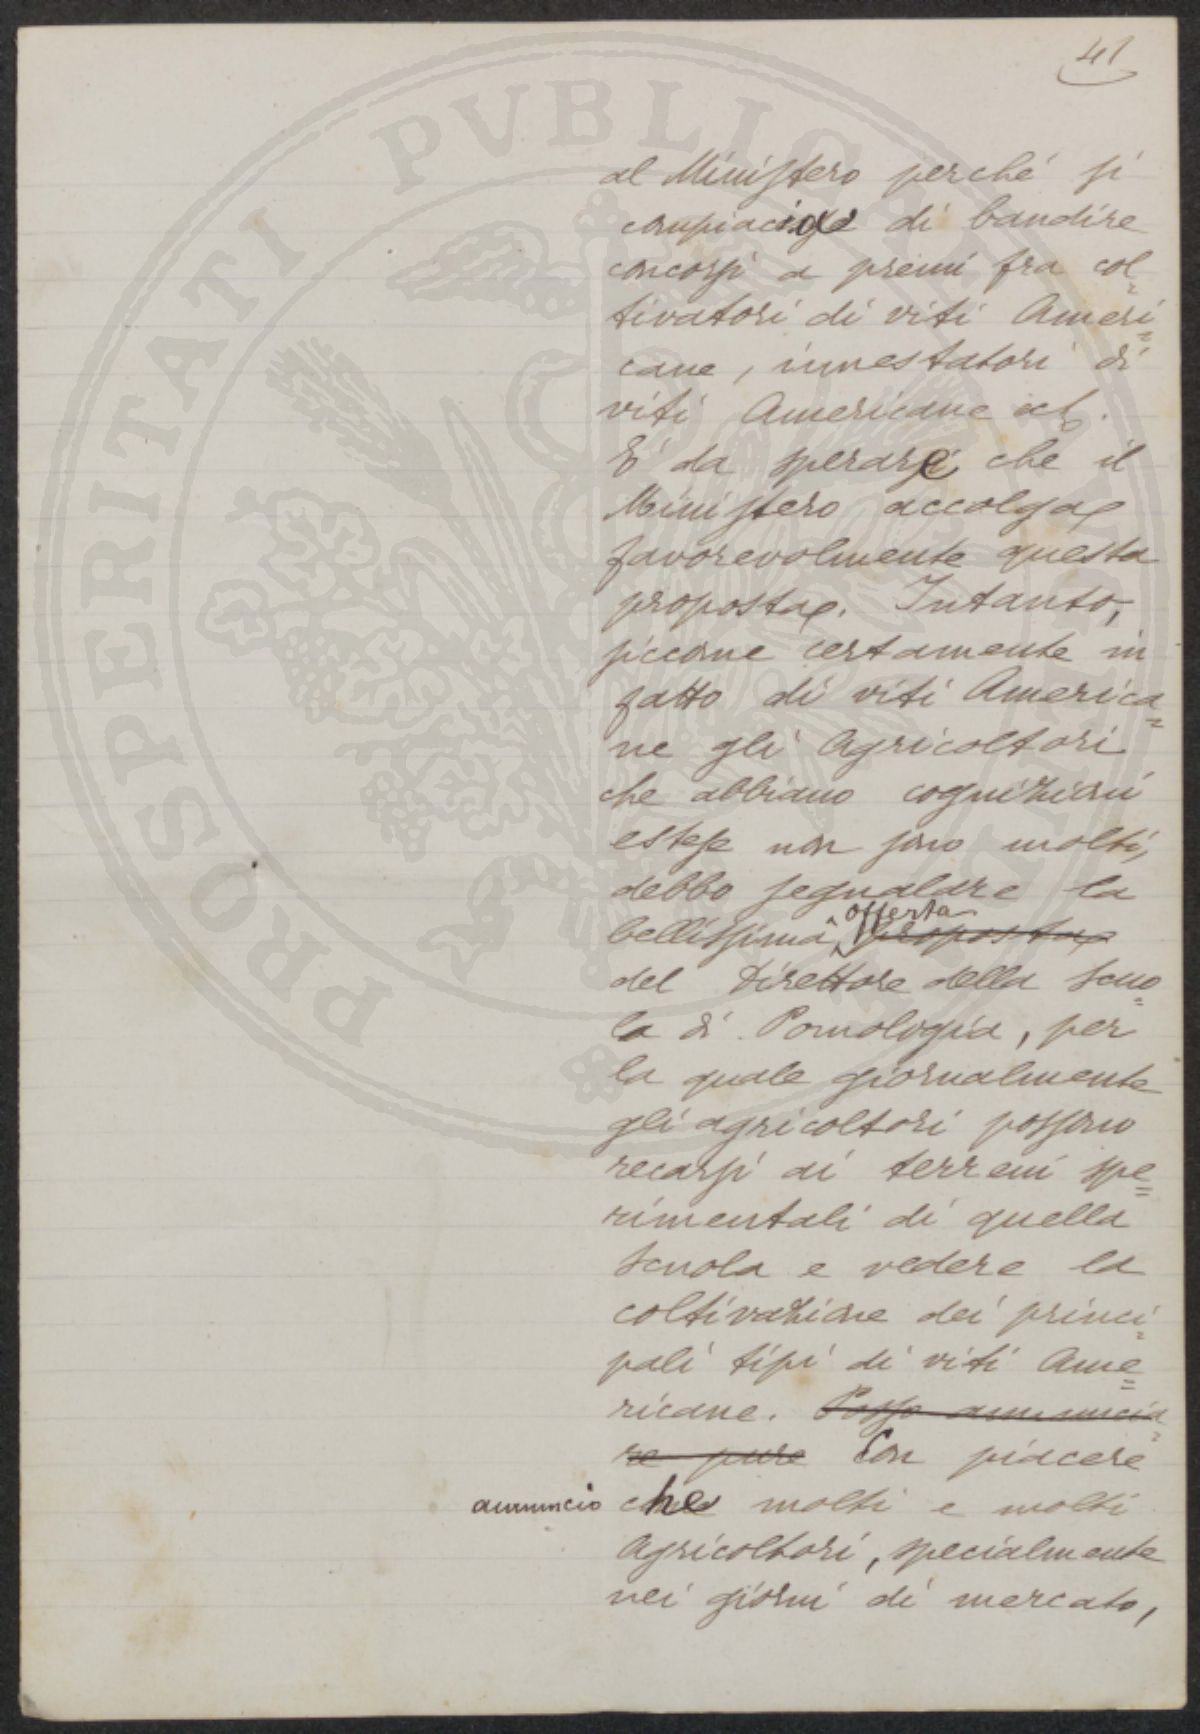 41
al Ministero perché si
compiaccia di bandire
concorsi a premi fra col=
tivatori di viti Ameri=
cane, innestatori di
viti Americane ecc.
E' da sperare che il
Ministero accolga
favorevolmente questa
proposta. Intanto,
siccome certamente in
fatto di viti America=
ne gli Agricoltori
che abbiano cognizioni
estese non sono molti,
debbo segnalare la
offerta
bellissima proposta
del Direttore della Scuo=
la di Pomologia, per
la quale giornalmente
gli agricoltori possono
recarsi ai terreni spe=
rimentali di quella
Scuola e vedere la
coltivazione dei princi=
pali tipi di viti Ame=
ricane. Posso annuncia=
re pure Con piacere
annuncio che molti e molti
Agricoltori, specialmente
nei giorni di mercato,
PROSPERITATI PVBLICAE